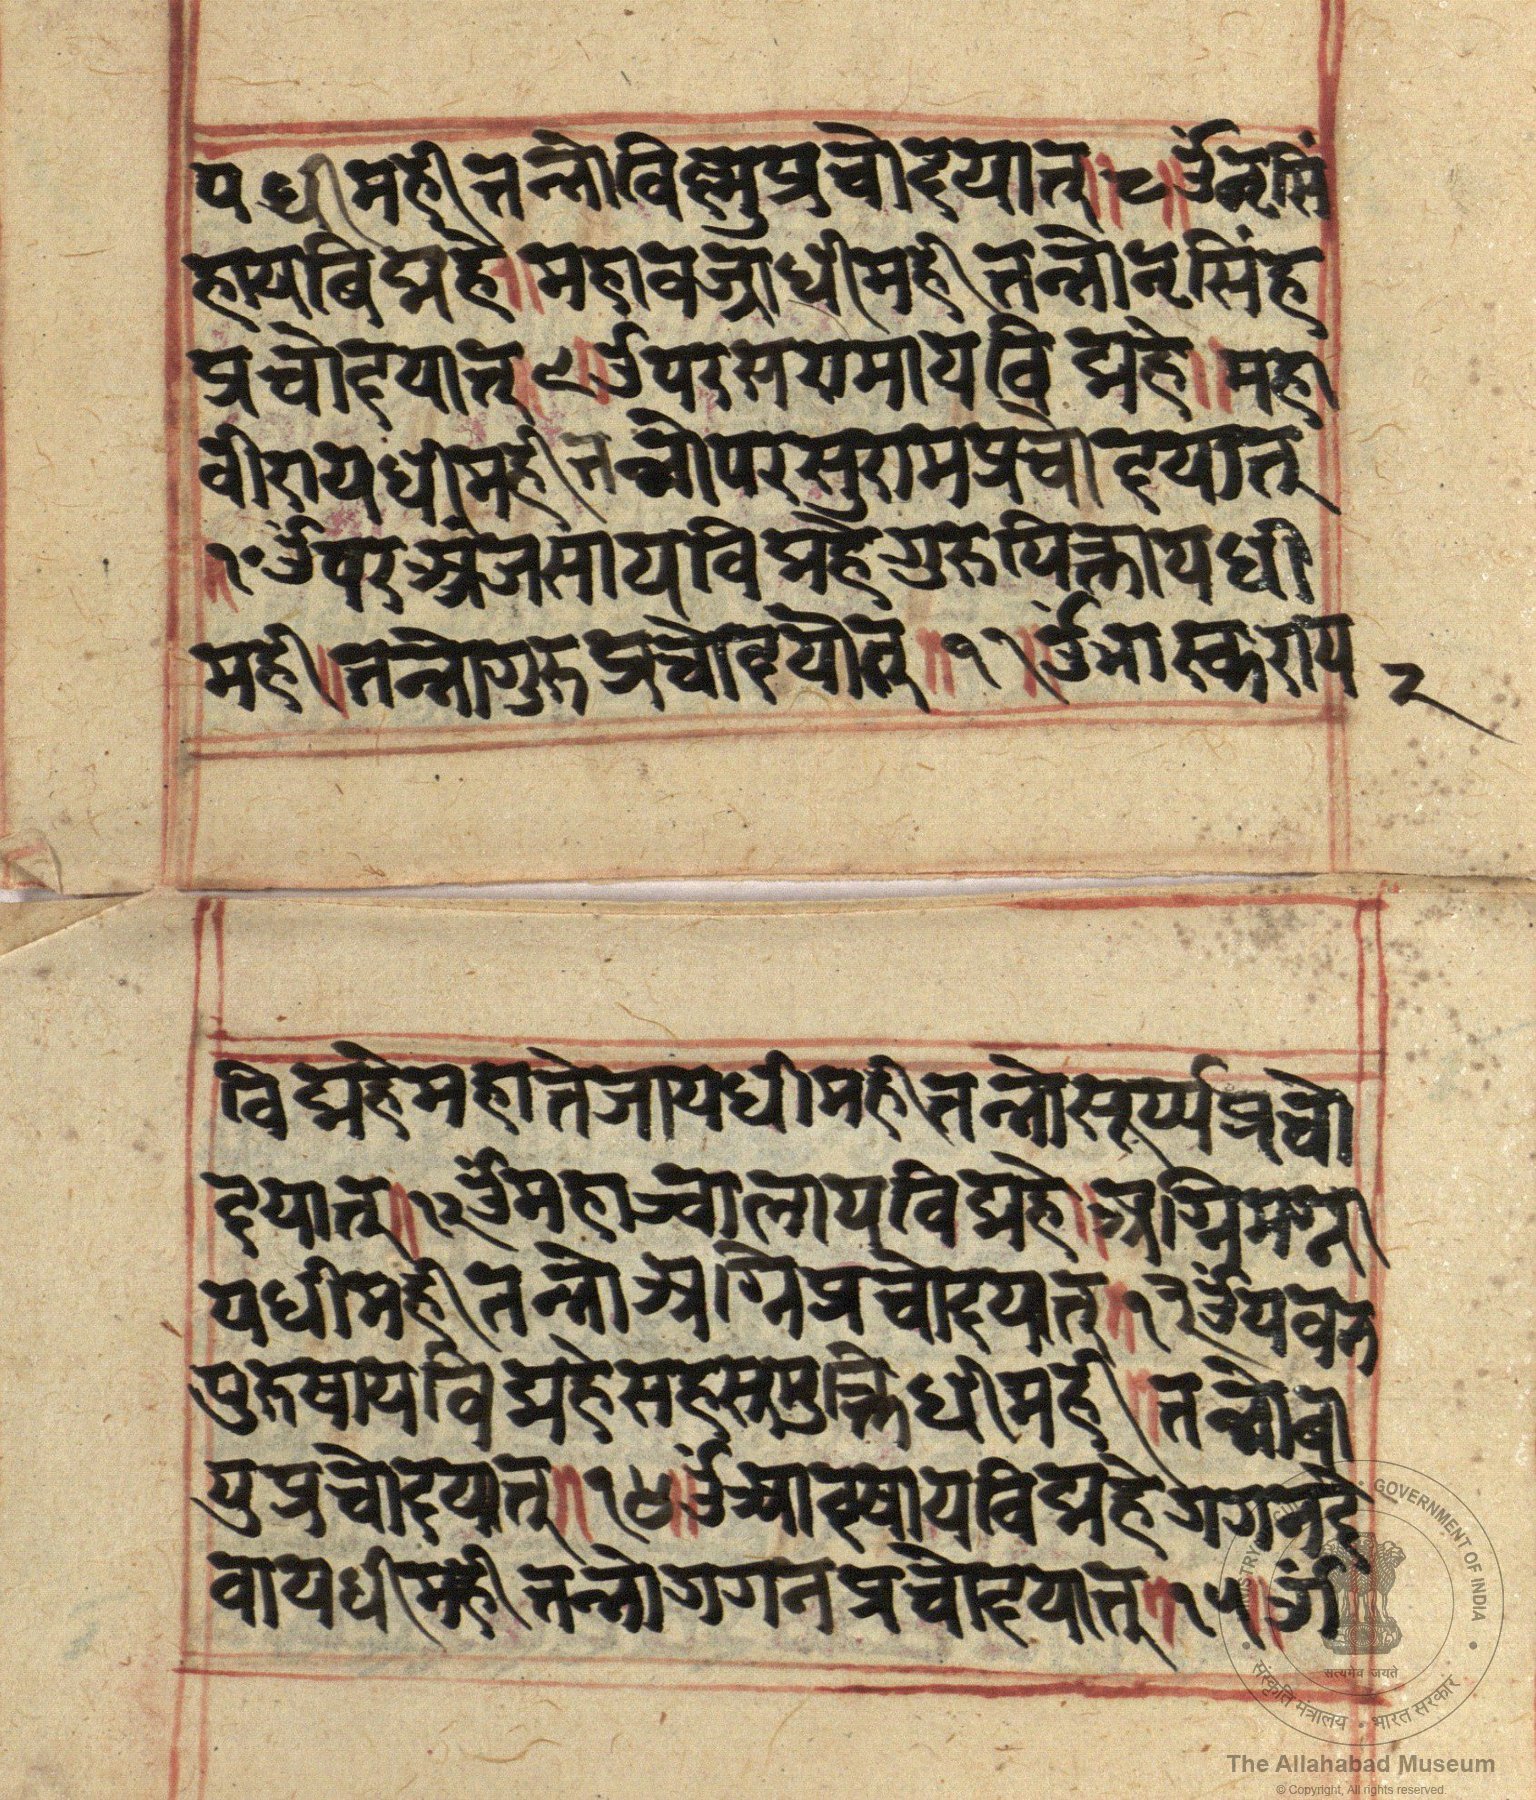 यधीमही तन्नोविह्मुप्रचोदयात् ॥८॥ ॐ नृसिं
हायविद्महे ॥ महावज्राधीमही तन्नोनृसिंह
प्रचोदयात् ॥९॥ ॐ परसरामायविद्महे ॥ महा
वीरायधीमही तन्नोपरसुरामप्रचोदयात्
॥१० ॐ पर विद्महे गुरु धी
मही ॥ तन्नोगुरुप्रचोदयात् ॥११॥ ॐ भास्कराय
२
विद्महेमहातेजायधीमही तन्नोसूर्य्यप्रचो
दयात् ॥१२ ॐ महाज्वालायविद्महे ॥ अग्नि
यधीमही तन्नोअग्निप्रचोदयत् ॥१३ ॐ
पुरुषायविद्महेसहस्र धीमही ॥ तन्नोवा
युप्रचोदयात् ॥१४॥ ॐ विद्महे गगनदे
वायधीमही तन्नोगगनप्रचोदयात् ॥१५॥ ॐ
MINISTRY OF CULTURE • GOVERNMENT OF INDIA
सत्यमेव जयते
संस्कृति मंत्रालय • भारत सरकार
The Allahabad Museum
© Copyright, All rights reserved.